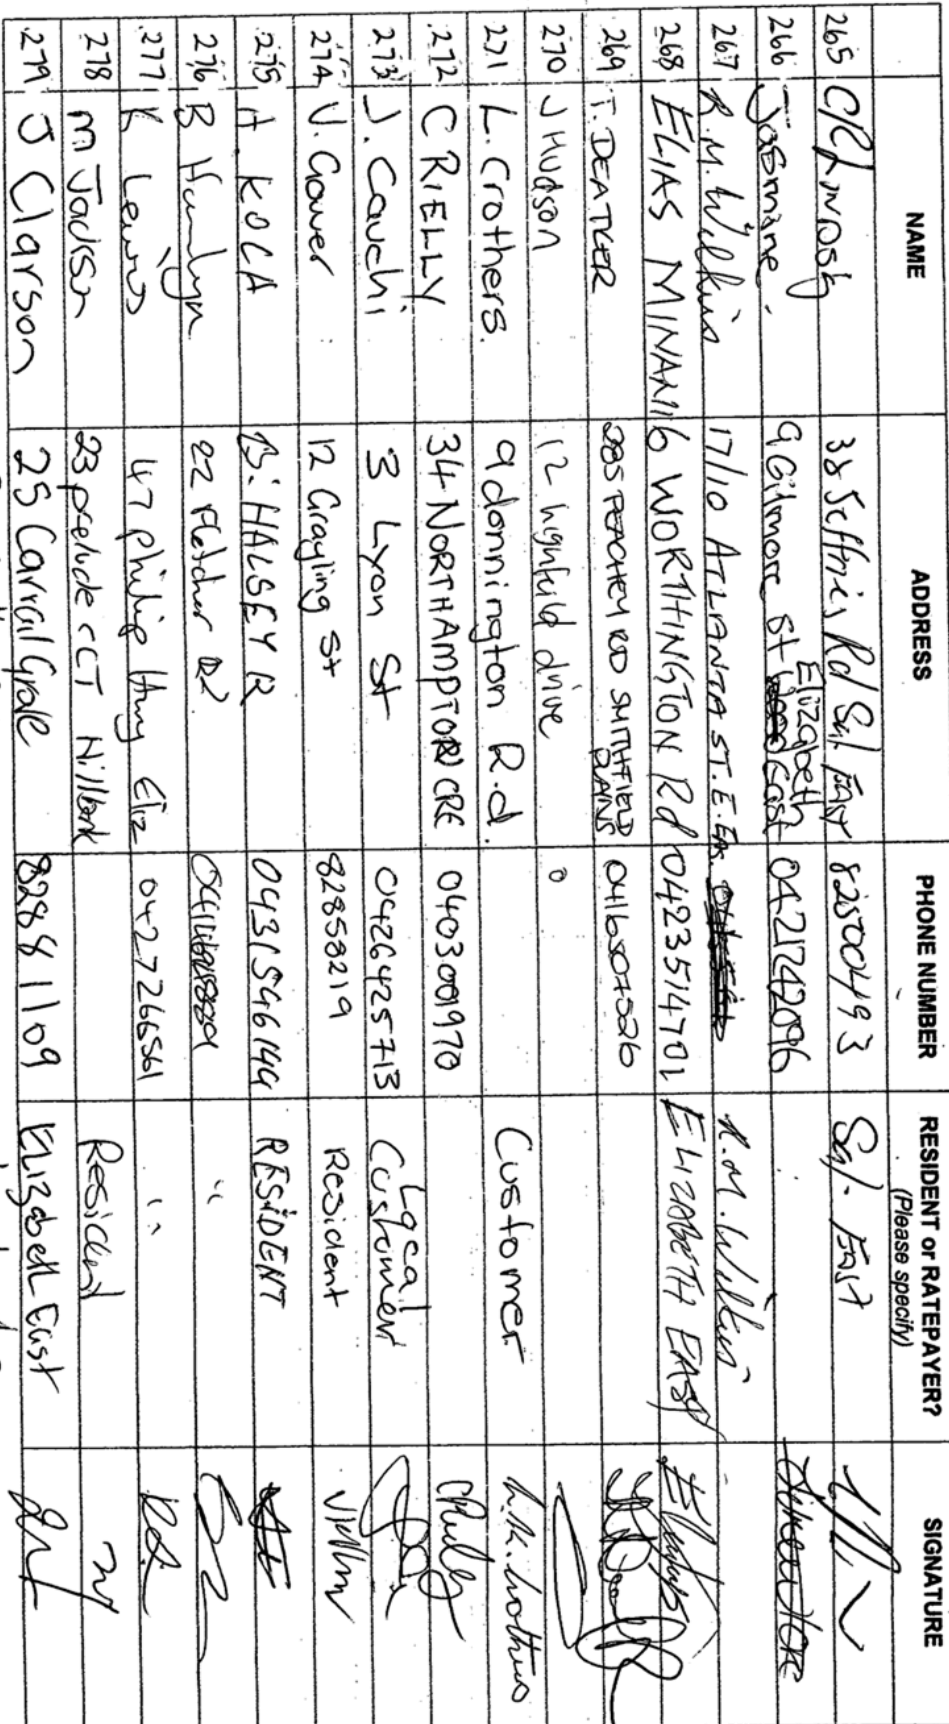 NAME ADDRESS PHONE NUMBER RESIDENT or RATEPAYER? (Please specify) SIGNATURE
265 38 Jeffries Rd Sal. East 82500493 Sal. East
266 Jasmine. 9 Gilmore St Elizabeth East 0421742096
267 R.M. Wilkin 17/10 ATLANTA ST. E. R.M. Wilkin
268 ELIAS 16 WORTHINGTON Rd 0423514701 ELIZABETH EAST
269 T. DEATKER 285 PEACHEY RD SMITHFIELD PLAINS
270 J Hudson 12 highfield drive 0
271 L. Crothers. 9 donnington R.d. Customer
272 C RIELLY 34 NORTHAMPTON CRE
273 J. Cauchi 3 Lyon St 0426425713 Local Customer
274 V. Gower 12 Grayling St 82858219 Resident
275 A. KOCA HALSEY R RESIDENT
276 B 22 Fletcher Rd "
277 K Lewis 47 philip Hwy Eliz 0427266561 "
278 M Jackson 23 prelude CCT Hillbank Resident
279 J Clarson 25 Grove 82881109 Elizabeth East